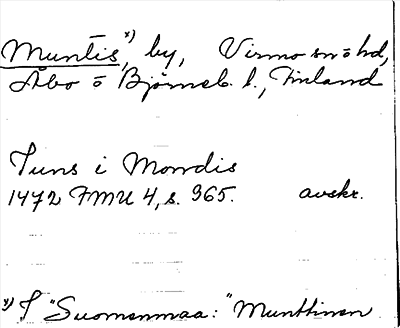 Muntis *), by, Virmo sn o hd,
Åbo o Björneb. l., Finland
Tuns i Mondis
1472 FMU 4, s. 365. avskr.
*) I "Suomenmaa:" Munttinen